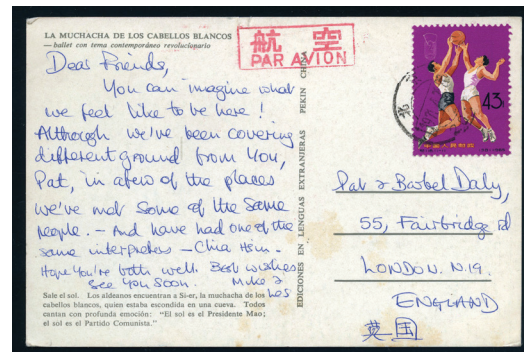 LA MUCHACHA DE LOS CABELLOS BLANCOS
—ballet con tema contemporáneo revolucionario
航空
PAR AVION
Dear Friends,
You can imagine what
we feel like to be here!
Although we've been covering
different ground from you,
Pat, in a few of the places
we've met some of the same
people. – And have had one of the
same interpreters – Chia Hsin.
Hope you're both well. Best wishes
See you soon. Mike &
Les
Sale el sol. Los aldeanos encuentran a Si-er, la muchacha de los
cabellos blancos, quien estaba escondida en una cueva. Todos
cantan con profunda emoción: "El sol es el Presidente Mao;
el sol es el Partido Comunista."
EDICIONES EN LENGUAS EXTRANJERAS PEKIN CHINA
43
中国人民邮政
Pat & Barbel Daly,
55, Fairbridge rd
LONDON. N.19.
ENGLAND
英国